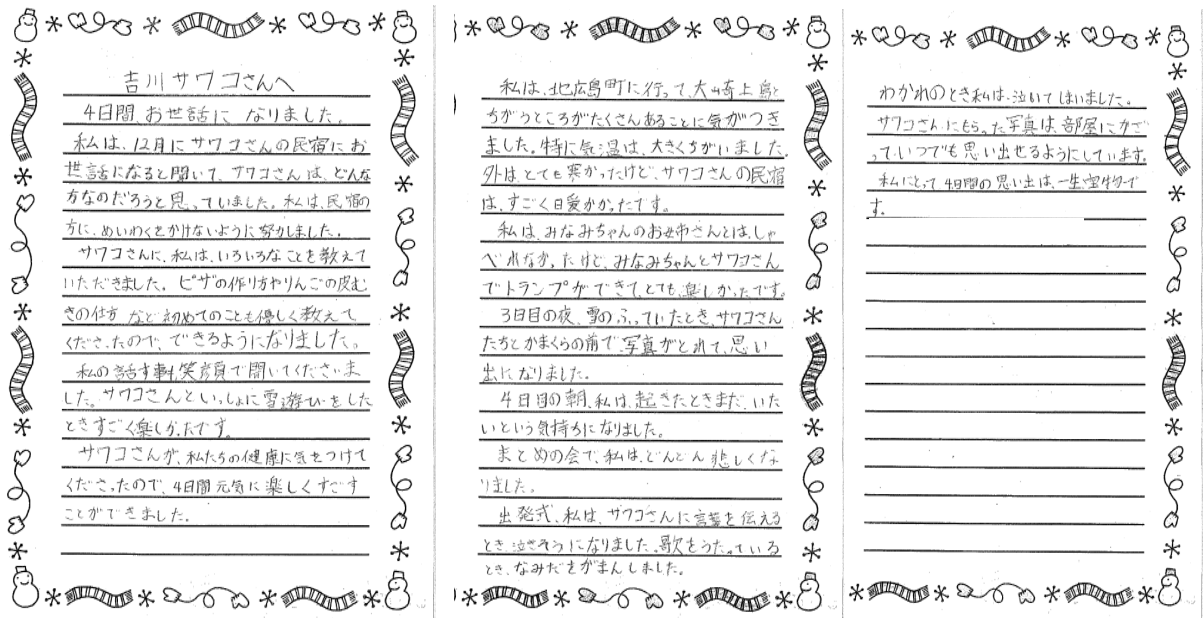 吉川サワコさんへ
4日間、お世話になりました。
私は、12月にサワコさんの民宿にお
世話になると聞いて、サワコさんは、どんな
方なのだろうと思っていました。私は、民宿の
方に、めいわくをかけないように努力しました。
サワコさんに、私は、いろいろなことを教えて
いただきました。ピザの作り方やりんごの皮む
きの仕方など初めてのことも優しく教えて
くださったので、できるようになりました。
私の話す事も笑顔で聞いてくださいま
した。サワコさんといっしょに雪遊びをした
ときすごく楽しかったです。
サワコさんが、私たちの健康に気をつけて
くださったので、4日間元気に楽しくすごす
ことができました。
私は、北広島町に行って、大崎上島と
ちがうところがたくさんあることに気がつき
ました。特に気温は、大きくちがいました。
外はとても寒かったけど、サワコさんの民宿
は、すごく暖かかったです。
私は、みなみちゃんのお姉さんとは、しゃ
べれなかったけど、みなみちゃんとサワコさん
でトランプができて、とても楽しかったです。
3日目の夜、雪のふっていたとき、サワコさん
たちとかまくらの前で、写真がとれて、思い
出になりました。
4日目の朝、私は、起きたときまだ、いた
いという気持ちになりました。
まとめの会で、私は、どんどん悲しくな
りました。
出発式、私は、サワコさんに言葉を伝える
とき、泣きそうになりました。歌をうたっている
とき、なみだをがまんしました。
わかれのとき私は、泣いてしまいました。
サワコさんにもらった写真は、部屋にかざ
って、いつでも思い出せるようにしています。
私にとって4日間の思い出は、一生宝物で
す。